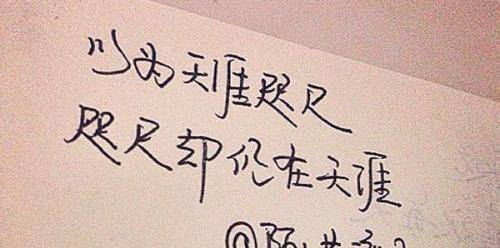 以为天涯咫尺
咫尺却仍在天涯